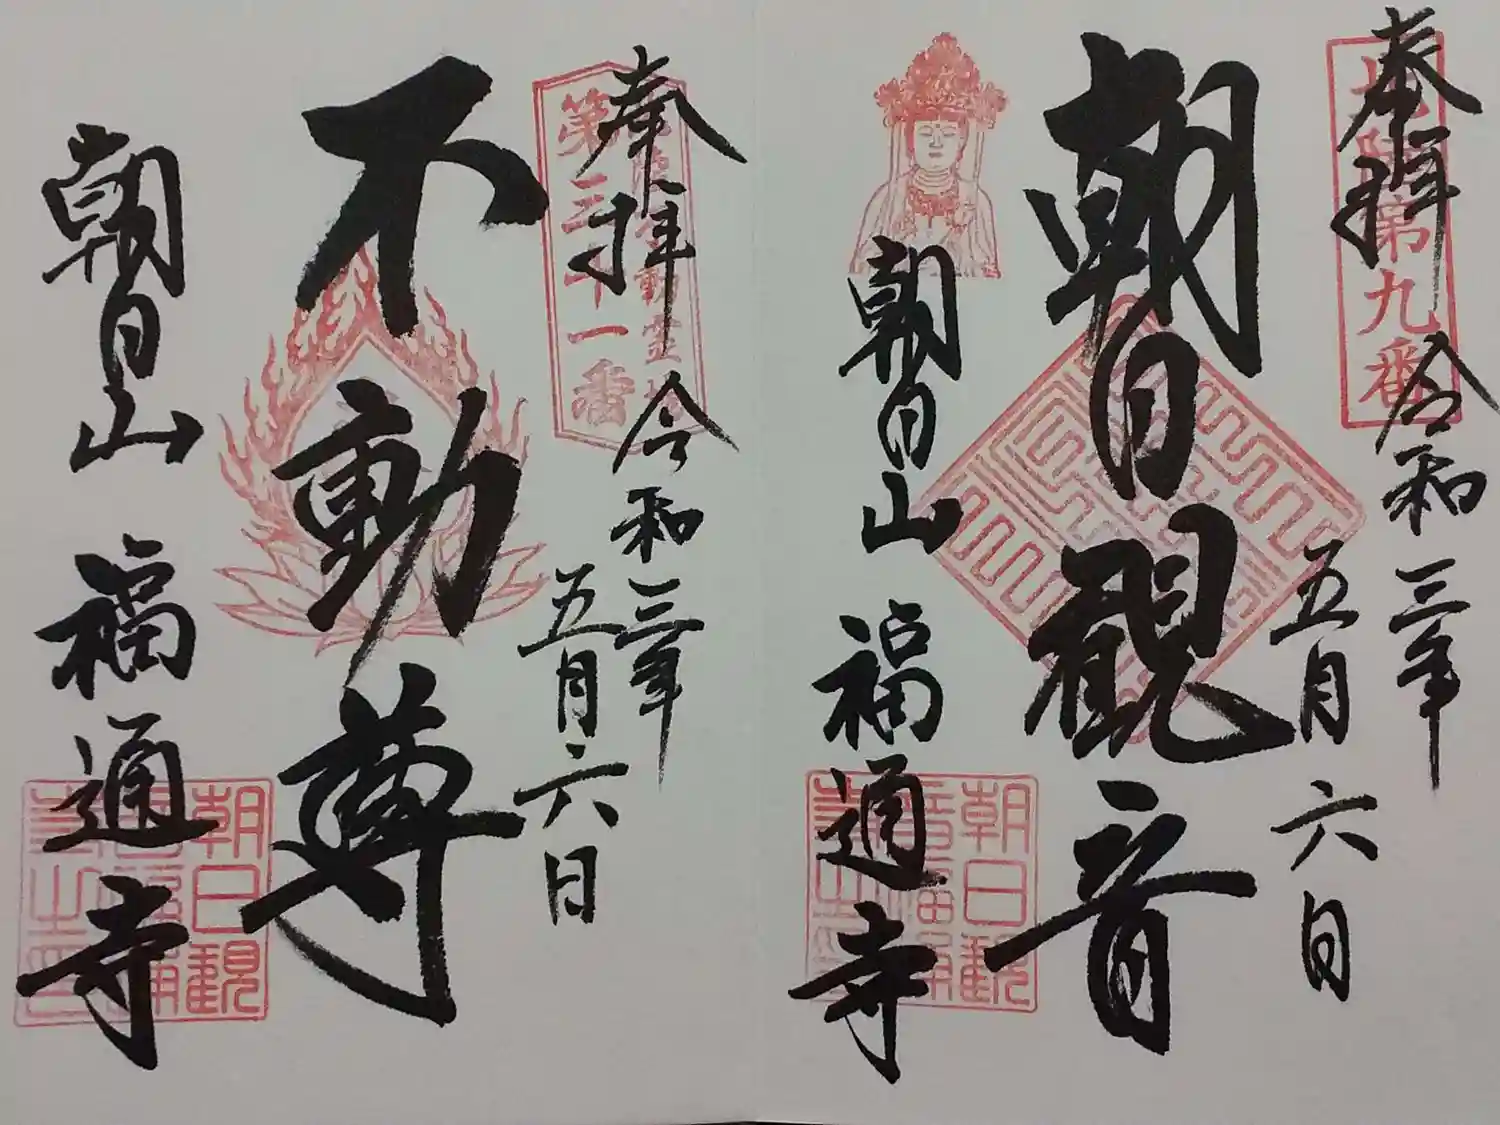 奉拝
令和三年
五月六日
朝日観音
朝日山 福通寺
第九番
朝日観
奉拝
令和三年
五月六日
不動尊
朝日山 福通寺
第三十一番
朝日観